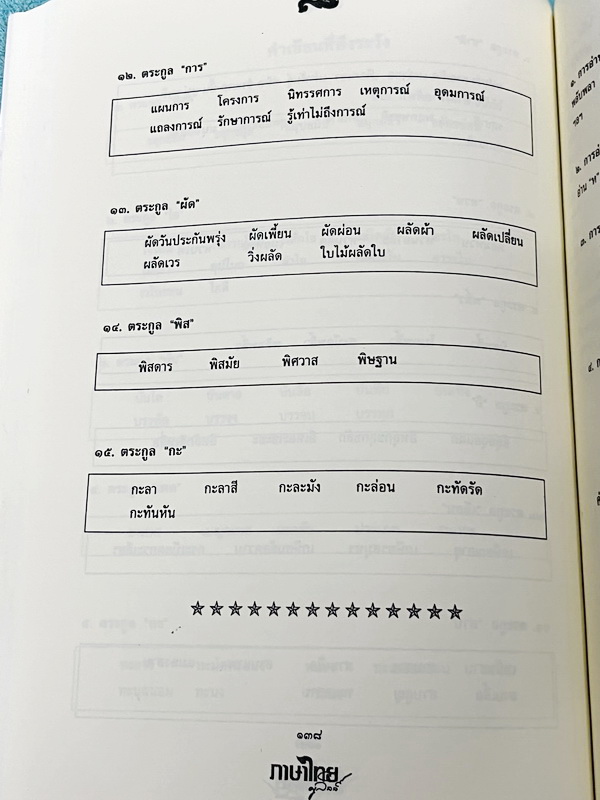 ๑๒. ตระกูล "การ"
แผนการ โครงการ นิทรรศการ เหตุการณ์ อุดมการณ์
แถลงการณ์ รักษาการณ์ รู้เท่าไม่ถึงการณ์
๑๓. ตระกูล "ผัด"
ผัดวันประกันพรุ่ง ผัดเพี้ยน ผัดผ่อน ผลัดผ้า ผลัดเปลี่ยน
ผลัดเวร วิ่งผลัด ใบไม้ผลัดใบ
๑๔. ตระกูล "พิส"
พิสดาร พิสมัย พิศวาส พิษฐาน
๑๕. ตระกูล "กะ"
กะลา กะลาสี กะละมัง กะล่อน กะทัดรัด
กะทันหัน
๑๓๘
ภาษาไทย